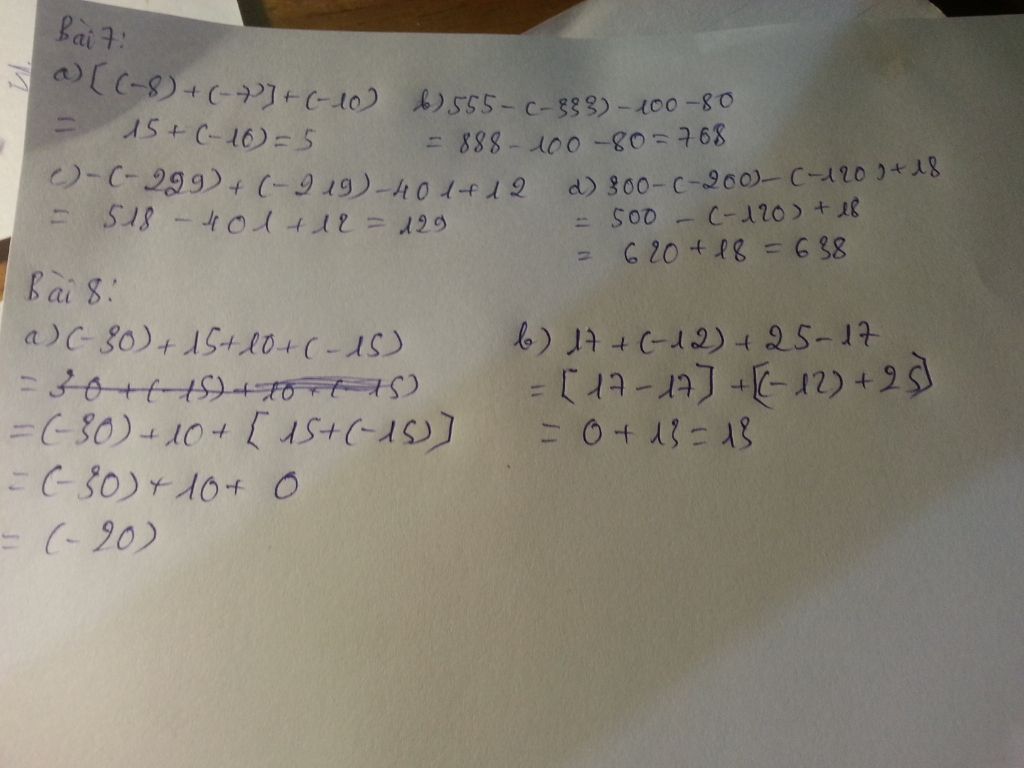 Bài 7:
a) [(-8) + (-7)] + (-10) b) 555 - (-333) - 100 - 80
= 15 + (-10) = 5 = 888 - 100 - 80 = 768
c) -(-299) + (-219) - 401 + 12 d) 300 - (-200) - (-120) + 18
= 518 - 401 + 12 = 129 = 500 - (-120) + 18
= 620 + 18 = 638
Bài 8:
a) (-30) + 15 + 10 + (-15) b) 17 + (-12) + 25 - 17
= 30 + (-15) + 10 + (-15) = [17 - 17] + [(-12) + 25]
= (-30) + 10 + [15 + (-15)] = 0 + 13 = 13
= (-30) + 10 + 0
= (-20)